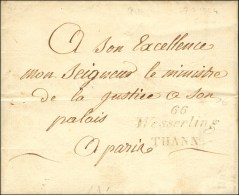 A son Excellence
mon seigneur le ministre
de la justice a son
palais
66
Wesserling
THANN
a paris